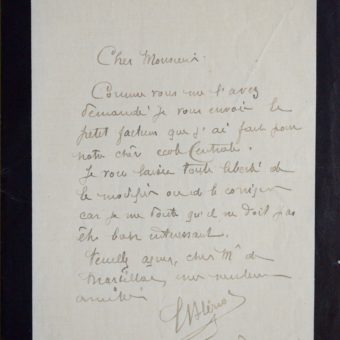 Cher Monsieur.
Comme vous me l'avez
demandé je vous envoie le
petit factum que j'ai fait pour
notre chère école Centrale.
Je vous laisse toute liberté de
le modifier ou de le corriger
car je me doute qu'il ne doit pas
être bien intéressant.
Veuillez agréer, cher Mr de
amitié